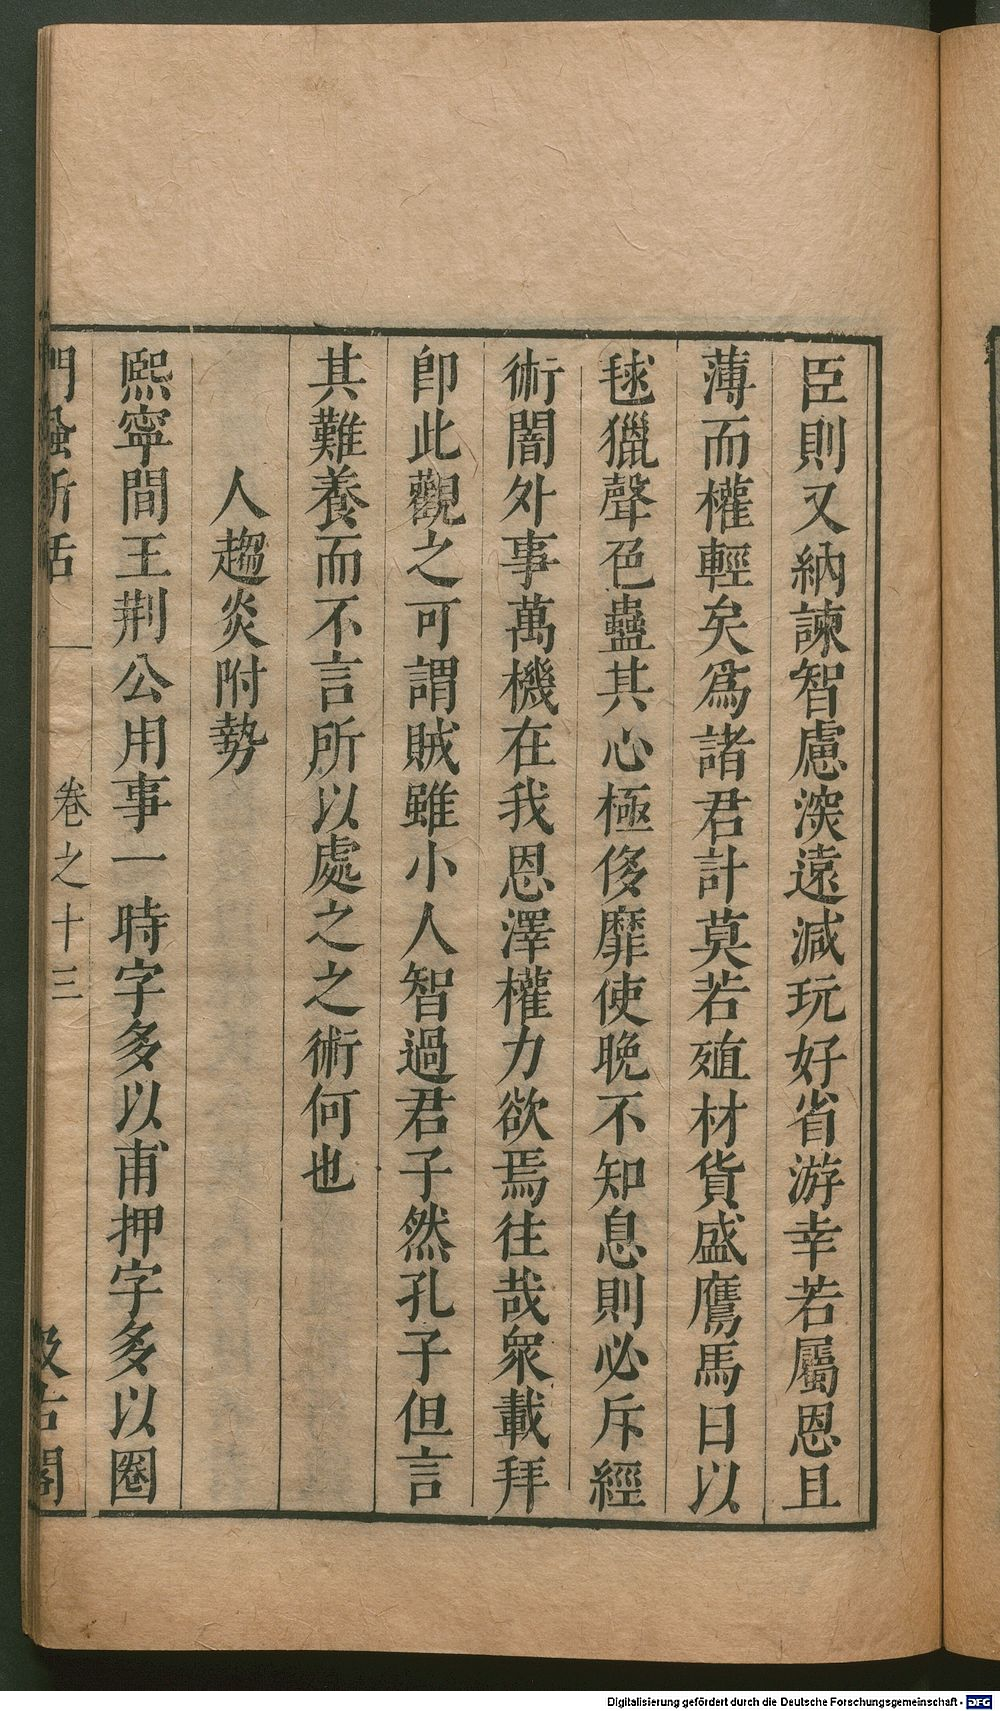 臣則又納諫智慮深遠減玩好省游幸若屬恩且
薄而權輕矣爲諸君計莫若殖材貨盛鷹馬日以
毬獵聲色蠱其心極侈靡使晚不知息則必斥經
術闇外事萬機在我恩澤權力欲焉往哉衆載拜
卽此觀之可謂賊雖小人智過君子然孔子但言
其難養而不言所以處之之術何也
人趨炎附勢
熙寧間王荆公用事一時字多以甫押字多以圈
門蝨新話 卷之十三 汲古閣
Digitalisierung gefördert durch die Deutsche Forschungsgemeinschaft - DFG